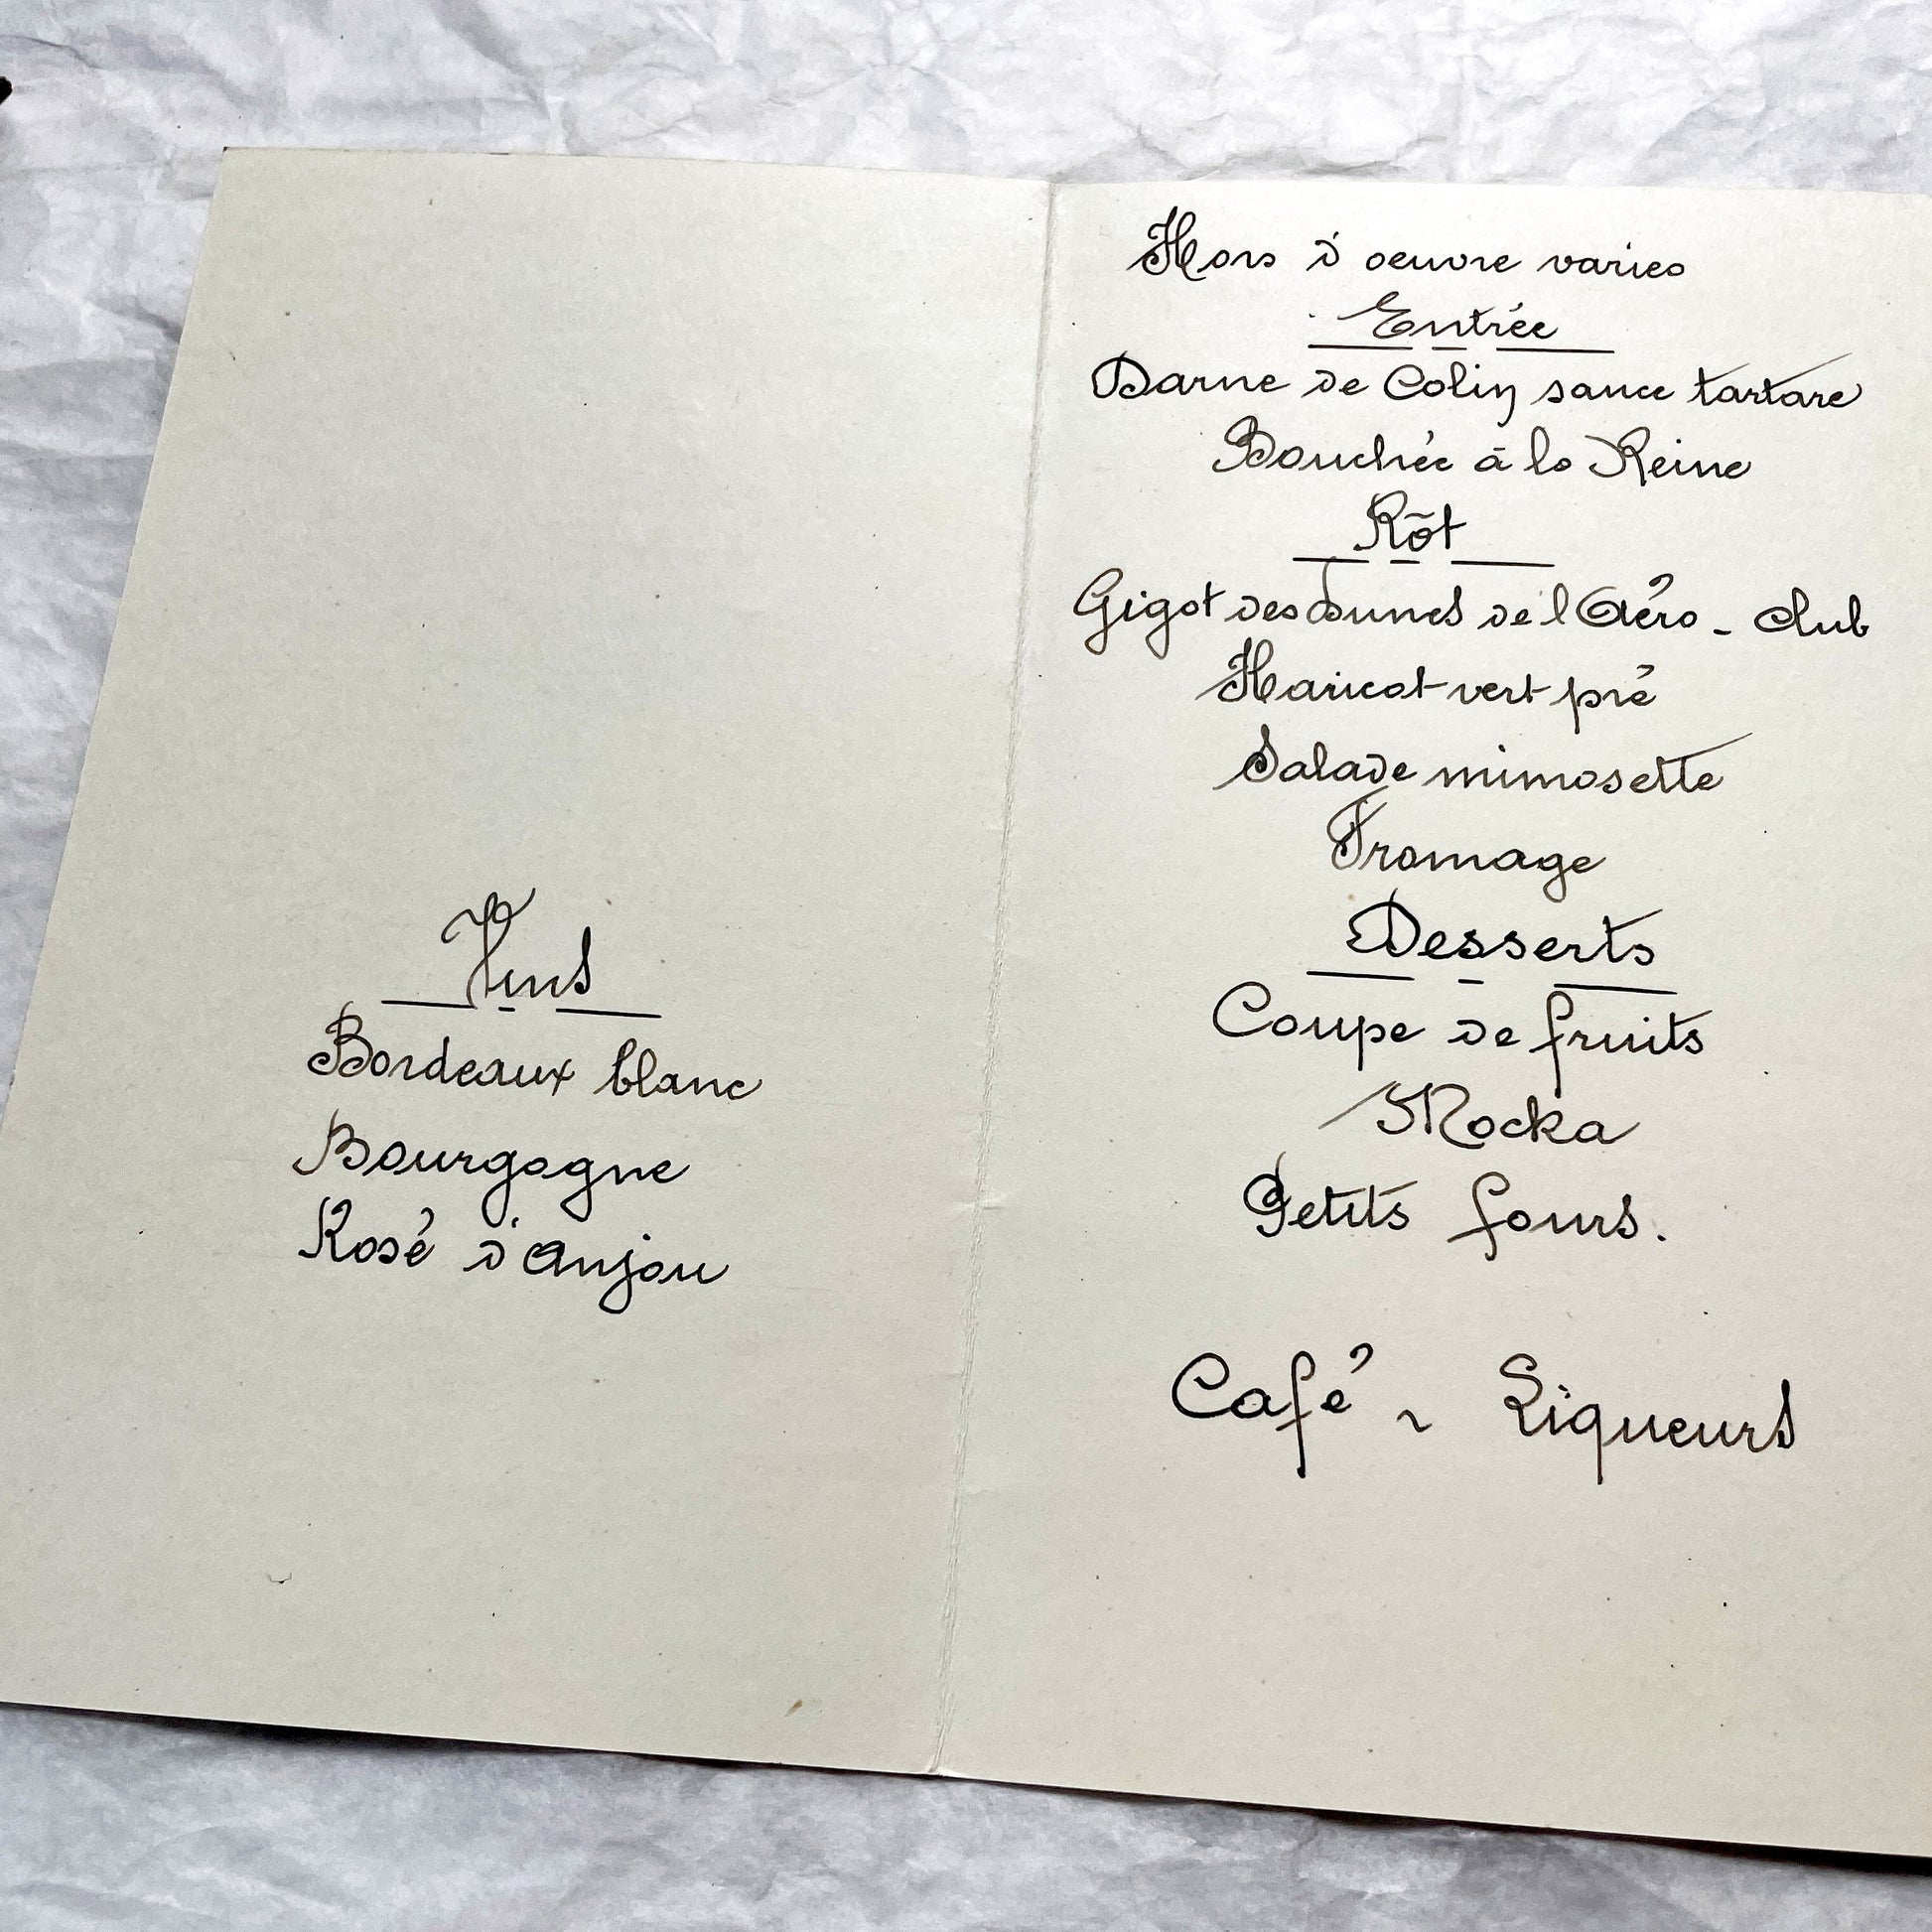 Vins
Bordeaux blanc
Bourgogne
Rosé d'Anjou
Hors d'oeuvre varies
Entrée
Darne de Colin sauce tartare
Bouchée à la Reine
Rôt
Gigot des dunes de l'Aéro-Club
Haricot vert pré
Salade mimosette
Fromage
Desserts
Coupe de fruits
Mocka
Petits fours.
Café - Liqueurs